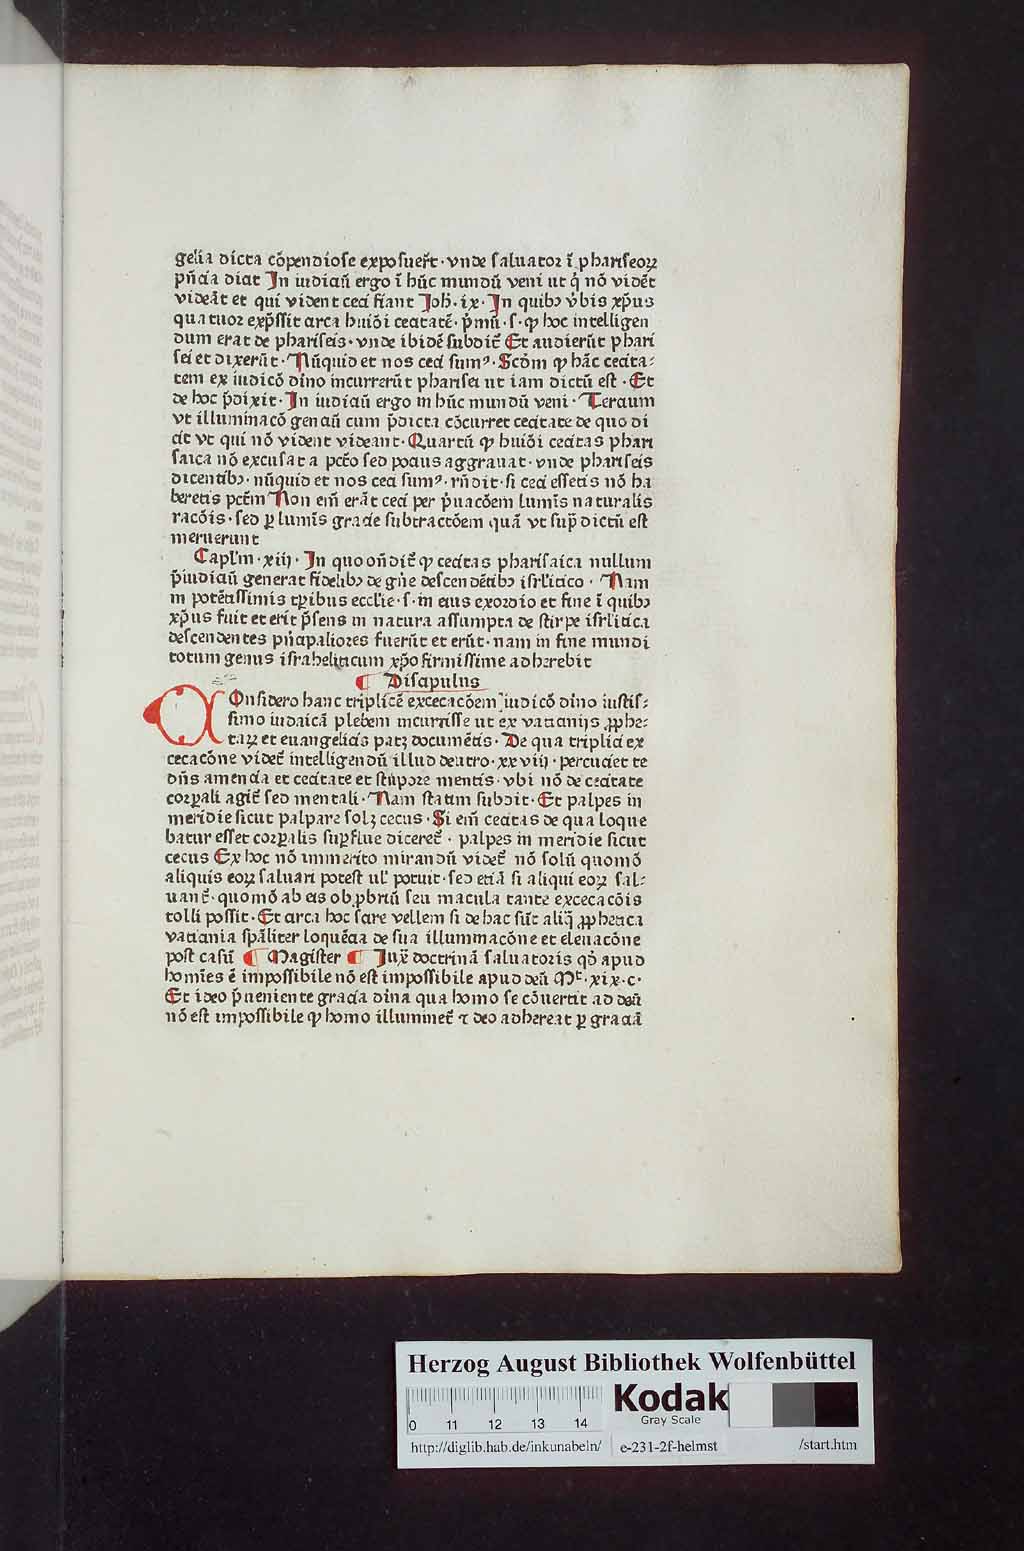 gelia dicta cōpendiose exposuer̄t · vnde saluator ī phariseoꝝ
pn̄cia dicit In iudiciū ergo ī hūc mundū veni ut q̇ nō vidēt
videāt et qui vident ceci fiant Joh̄ · ix · In quibꝫ v̄bis xp̄us
quatuor exp̄ssit circa huiōi cecitatē · p̄mū · s · ꝙ hoc intelligen
dum erat de phariseis · vnde ibidē subdit᷑ Et audierūt phari
sei et dixerūt · Nūquid et nos ceci sumꝰ · Scōm ꝙ hāc cecita⸗
tem ex iudicō diuo incurrerūt pharisei ut iam dictū est · Et
de hoc p̄dixit · In iudiciū ergo in hūc mundū veni · Tercium
vt illuminacō genciū cum p̄dicta cōcurret cecitate de quo di
cit vt qui nō vident videant · Quartū ꝙ huiōi cecitas phari
saica nō excusat a pctō sed pocius aggrauat · vnde phariseis
dicentibꝫ · nūquid et nos ceci sumꝰ · rn̄dit · si ceci essetis nō ha
beretis pctm̄ Non em̄ erāt ceci per p̄uacōem lumīs naturalis
racōis · sed ꝑ lumīs gracie subtractōem quā vt sup̄ dictū est
meruerunt
Capl̄m · xiij · In quo on̄dit᷑ ꝙ cecitas pharisaica nullum
p̄iudiciū generat fidelibꝫ de gn̄e descendētibꝫ isrl̄itico · Nam
in potētissimis tꝑibus eccl̄ie · s · in eius exordio et fine ī quibꝫ
xp̄us fuit et erit p̄sens in natura assumpta de stirpe isrl̄itica
descendentes pn̄cipaliores fuerūt et erūt · nam in fine mundi
totum genus israheliticum xp̄o firmissime adherebit
¶ Discipulus
COnsidero hanc triplicē excecacōem iudicō diuo iustis⸗
simo iudaicā plebem incurrisse ut ex vaticinijs ꝓphe⸗
taꝝ et euangelicis patꝫ documētis · De qua triplici ex
cecacōne videt᷑ intelligendū illud deutro · xxviij · percuciet te
dn̄s amencia et cecitate et stupore mentis · vbi nō de cecitate
corꝑali agit᷑ sed mentali · Nam statim subdit · Et palpes in
meridie sicut palpare solꝫ cecus · Si em̄ cecitas de qua loque
batur esset corꝑalis suꝑflue diceret᷑ · palpes in meridie sicut
cecus Ex hoc nō immerito mirandū videt᷑ nō solū quomō
aliquis eoꝝ saluari potest ul̄ potuit · sed etiā si aliqui eoꝝ sal⸗
uant᷑ · quomō ab eis obꝓbriū seu macula tante excecacōis
tolli possit · Et circa hoc scire vellem si de hac sūt aliq̄ ꝓphetica
vaticinia spāliter loquēcia de sua illuminacōne et eleuacōne
post casū ¶ Magister ¶ Jux̄ doctrinā saluatoris qd̄ apud
homīes ē impossibile nō est impossibile apud deū Mͭ · xix · c ·
Et ideo p̄ueniente gracia diuina qua homo se cōuertit ad deū
nō est impossibile ꝙ homo illuminet᷑ ⁊ deo adhereat ꝑ graciā
Herzog August Bibliothek Wolfenbüttel
0 11 12 13 14
Kodak
Gray Scale
http://diglib.hab.de/inkunabeln/ e-231-2f-helmst /start.htm